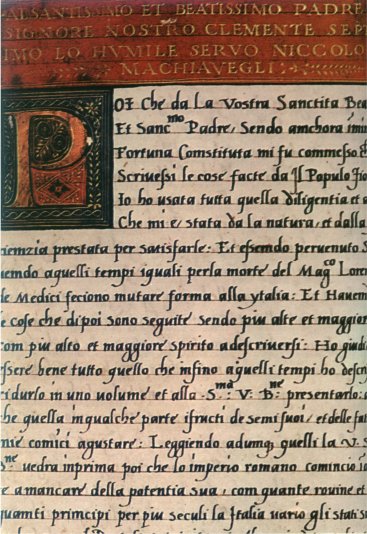 ALSANTISSIMO ET BEATISSIMO PADRE
SIGNORE NOSTRO CLEMENTE SEP
IMO LO HVMILE SERVO NICCOLO
MACHIAVEGLI:
POI Che da La Vostra Sanctita Bea
Et Sanc.mo Padre, Sendo anchora imin
Fortuna Constituta mi fu commesso
Scrivessi le cose facte da Il Populo Fio
Io ho usata tutta quella diligentia et a
Che mi e, stata da la natura, et dalla
rienzia prestata per satisfarle: Et essendo pervenuto S
uemdo aquelli tempi iquali perla morte del Mag.co Loren
de Medici feciono mutare forma alla ytalia: Et Hauem
e cose che dipoi sono seguite sendo piu alte et maggior
com piu alto et maggiore spirito adescriuersi: Ho giudi
essere bene tutto quello che insino aquelli tempi ho descri
ridurlo in uno uolume et alla .S.ma V. B.ne presentarlo: a
che quella inqualche parte ifructi de semi suoi, et delle fat
mie comici agustare: Leggiendo adumq; quelli la V. S
B.ne uedra inprima poi che lo imperio romano cominciò
e amancare della potentia sua, com quante rouine et
quanti principi per piu seculi la Italia uario gli stati s